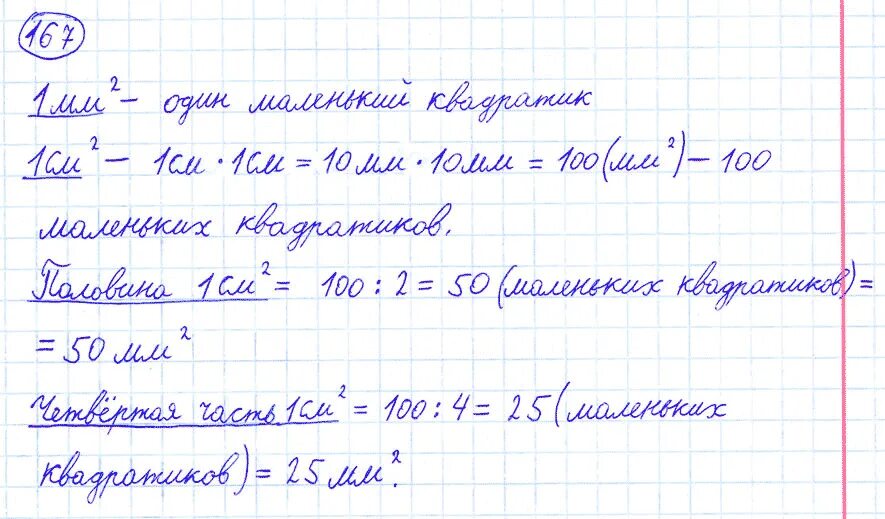 167
1мм² – один маленький квадратик
1см² – 1см · 1см = 10мм · 10мм = 100(мм²) – 100
маленьких квадратиков.
Половина 1см² = 100 : 2 = 50 (маленьких квадратиков) =
= 50 мм²
Четвёртая часть 1см² = 100 : 4 = 25 (маленьких
квадратиков) = 25 мм².